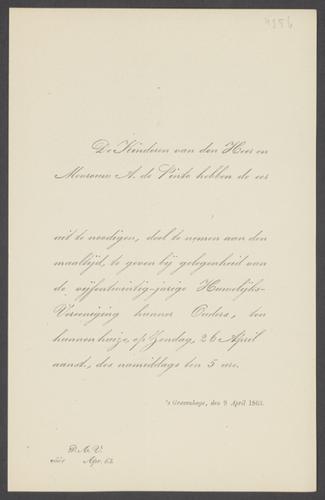 4156
De Kinderen van den Heer en
Mevrouw A. de Pinto hebben de eer
uit te noodigen, deel te nemen aan den
maaltijd, te geven bij gelegenheid van
de vijfentwintig-jarige Huwelijks-
Vereeniging hunner Ouders, ten
hunnen huize, op Zondag, 26 April
aanst., des namiddags ten 5 ure.
's Gravenhage, den 9 April 1863.
R. A. V.
vóór Apr. 63